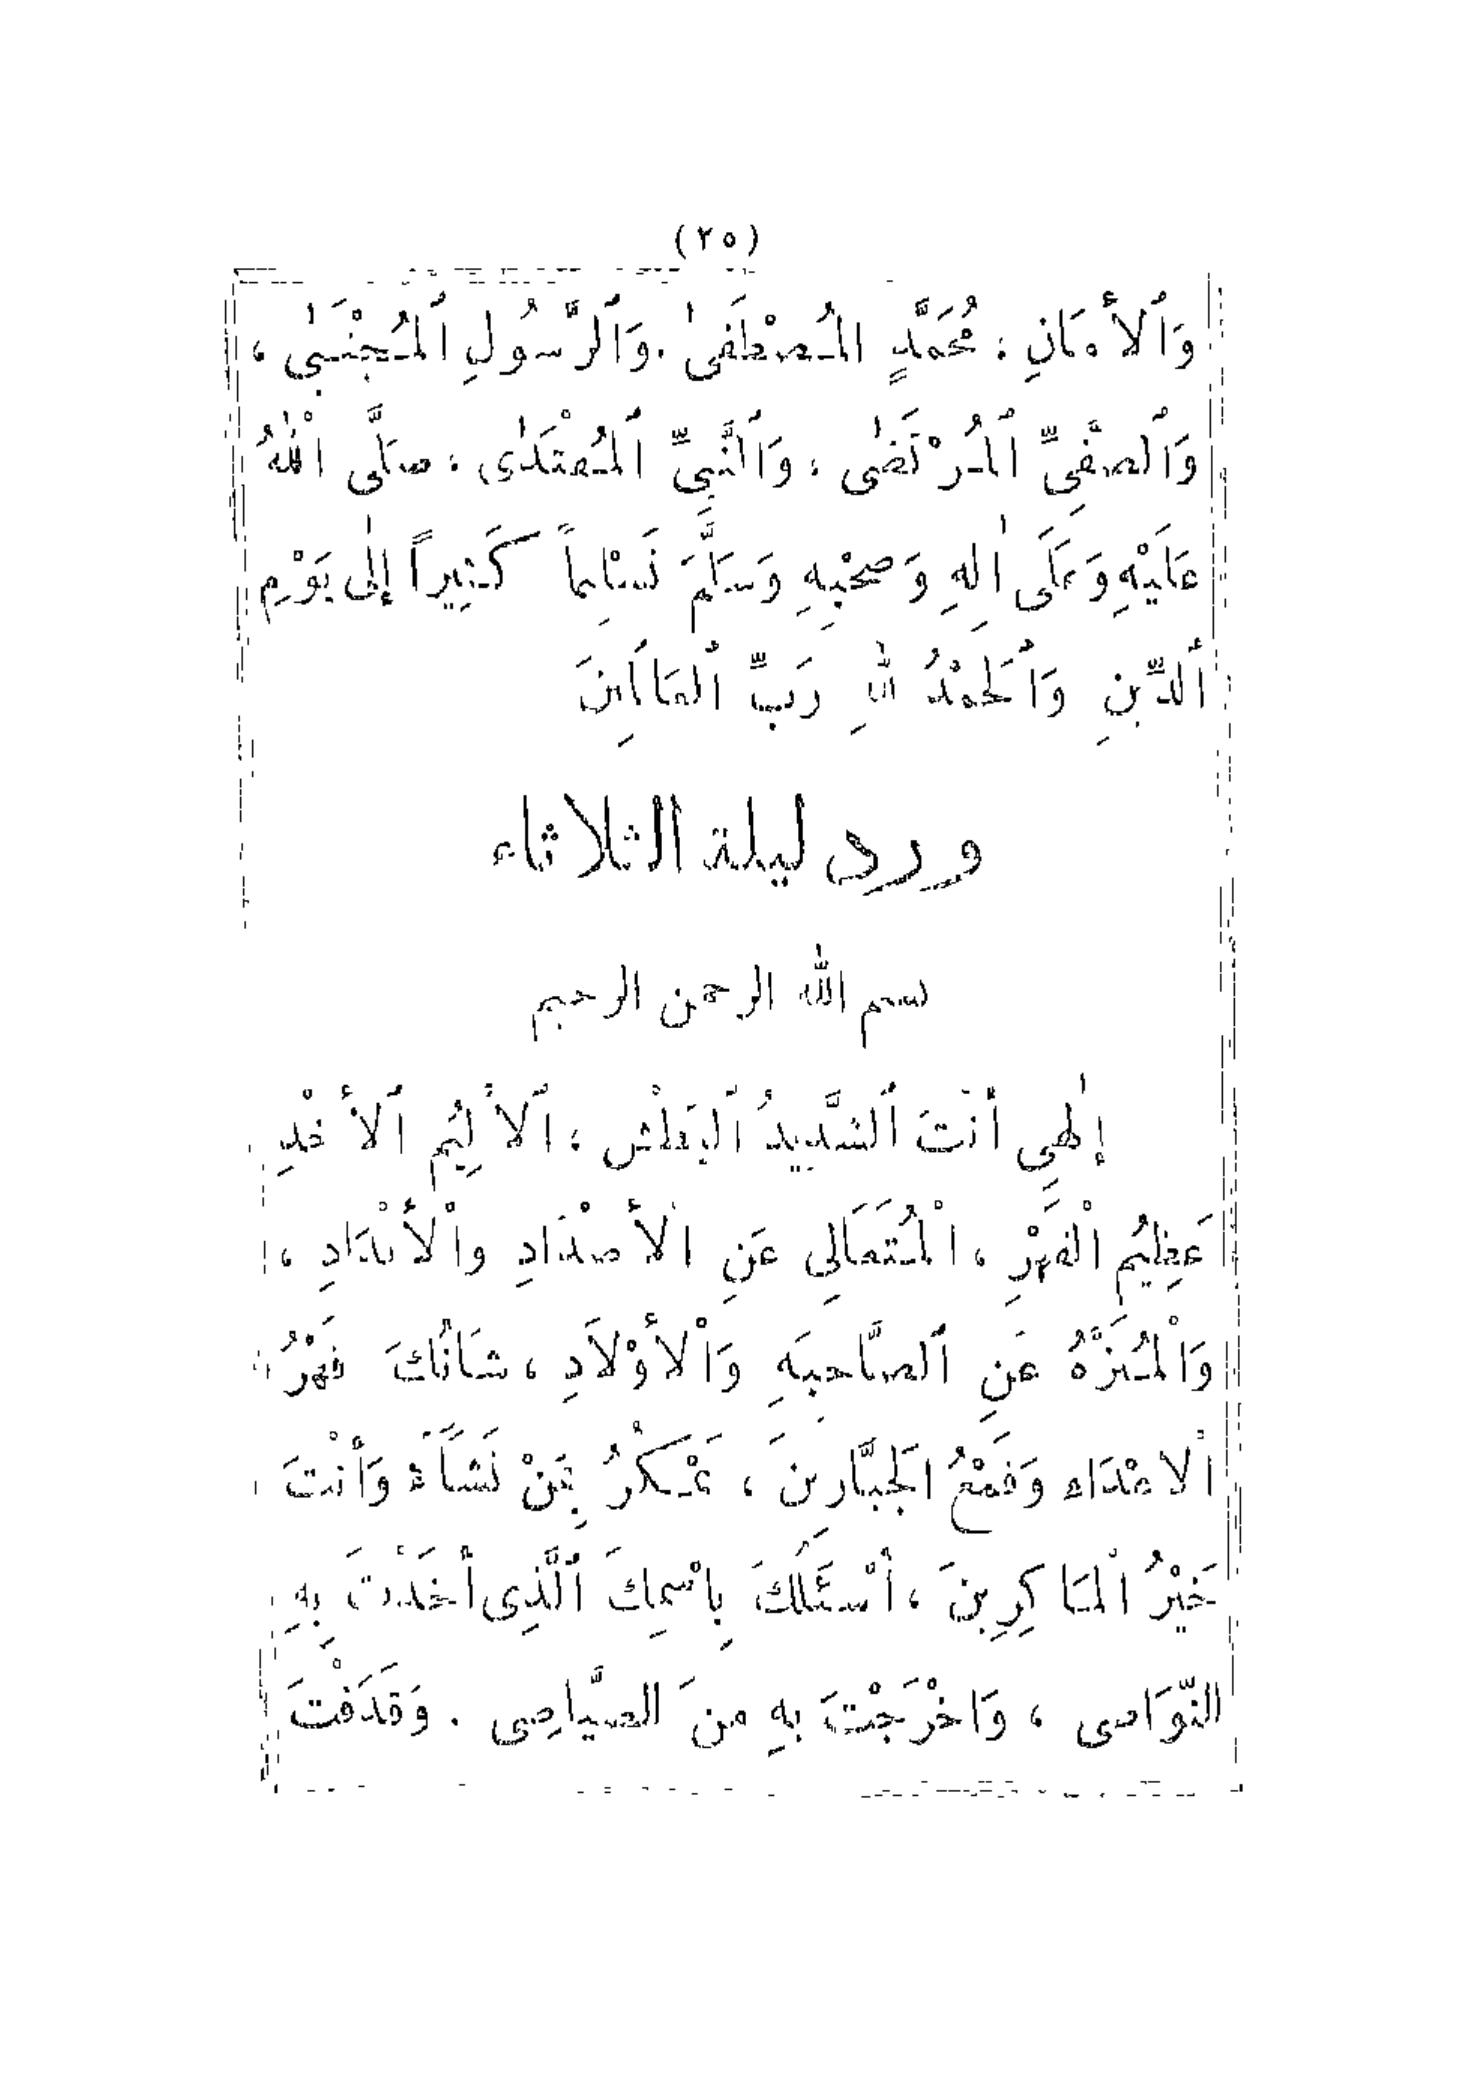 (٢٥)
وَٱلأَمَانِ ، مُحَمَّدٍ المُصْطَفَىٰ . وَٱلرَّسُولِ ٱلمُجْتَبَىٰ ،
وَٱلصَّفِيِّ ٱلمُرْتَضٰى ، وَٱلنَّبِيِّ ٱلمُقْتَدٰى ، صَلَّى اللّٰهُ
عَلَيْهِ وَعَلَى اٰلِهِ وَصَحْبِهِ وَسَلَّمَ تَسْلِيماً كَثِيراً إِلٰى يَوْمِ
ٱلدِّينِ وَٱلحَمْدُ للهِ رَبِّ ٱلعَالَمِينَ
ورد ليلة الثلاثاء
بسم الله الرحمن الرحيم
إِلٰهِي أَنْتَ ٱلشَّدِيدُ ٱلبَطْشِ ، ٱلأَلِيُم ٱلأَخْذِ
عَظِيُم الْقَهْرِ ، الْمُتَعَالِي عَنِ الأَضْدَادِ والْأَنْدَادِ ،
وَالْمُنَزَّهُ عَنِ ٱلصَّاحِبَةِ وَالْأَوْلاَدِ ، شَأنُكَ قَهْرُ
الْاعْدَاء وَقَمْعُ الجَبَّارِينَ ، تَمْكُرُ بِمَنْ تَشَاءُ وَأَنْتَ
خَيْرُ الْمَاكِرِينَ ، أَسْئَلُكَ بِاسْمِكَ ٱلَّذِى أَخَذْتَ بِهِ
النَّوَاصى ، وَاخْرَجْتَ بِهِ منَ الصَّيَاصِى . وَقَذَفْتَ